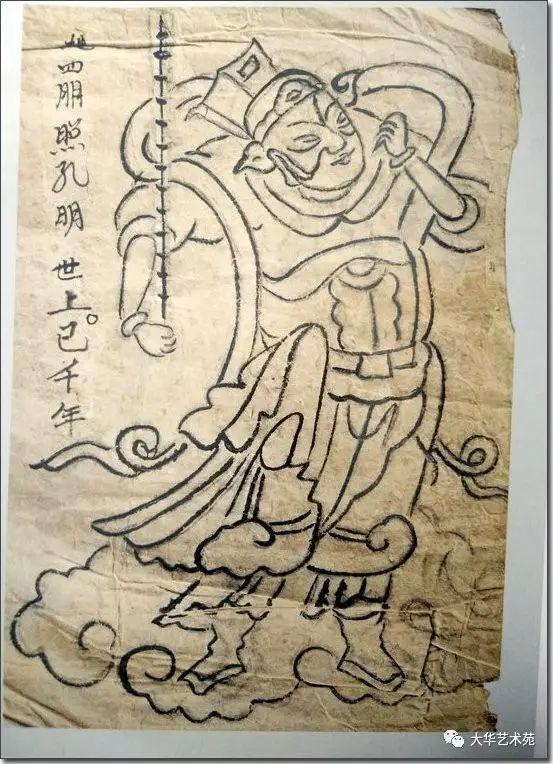 四朋照孔明世上已千年
大华艺术苑